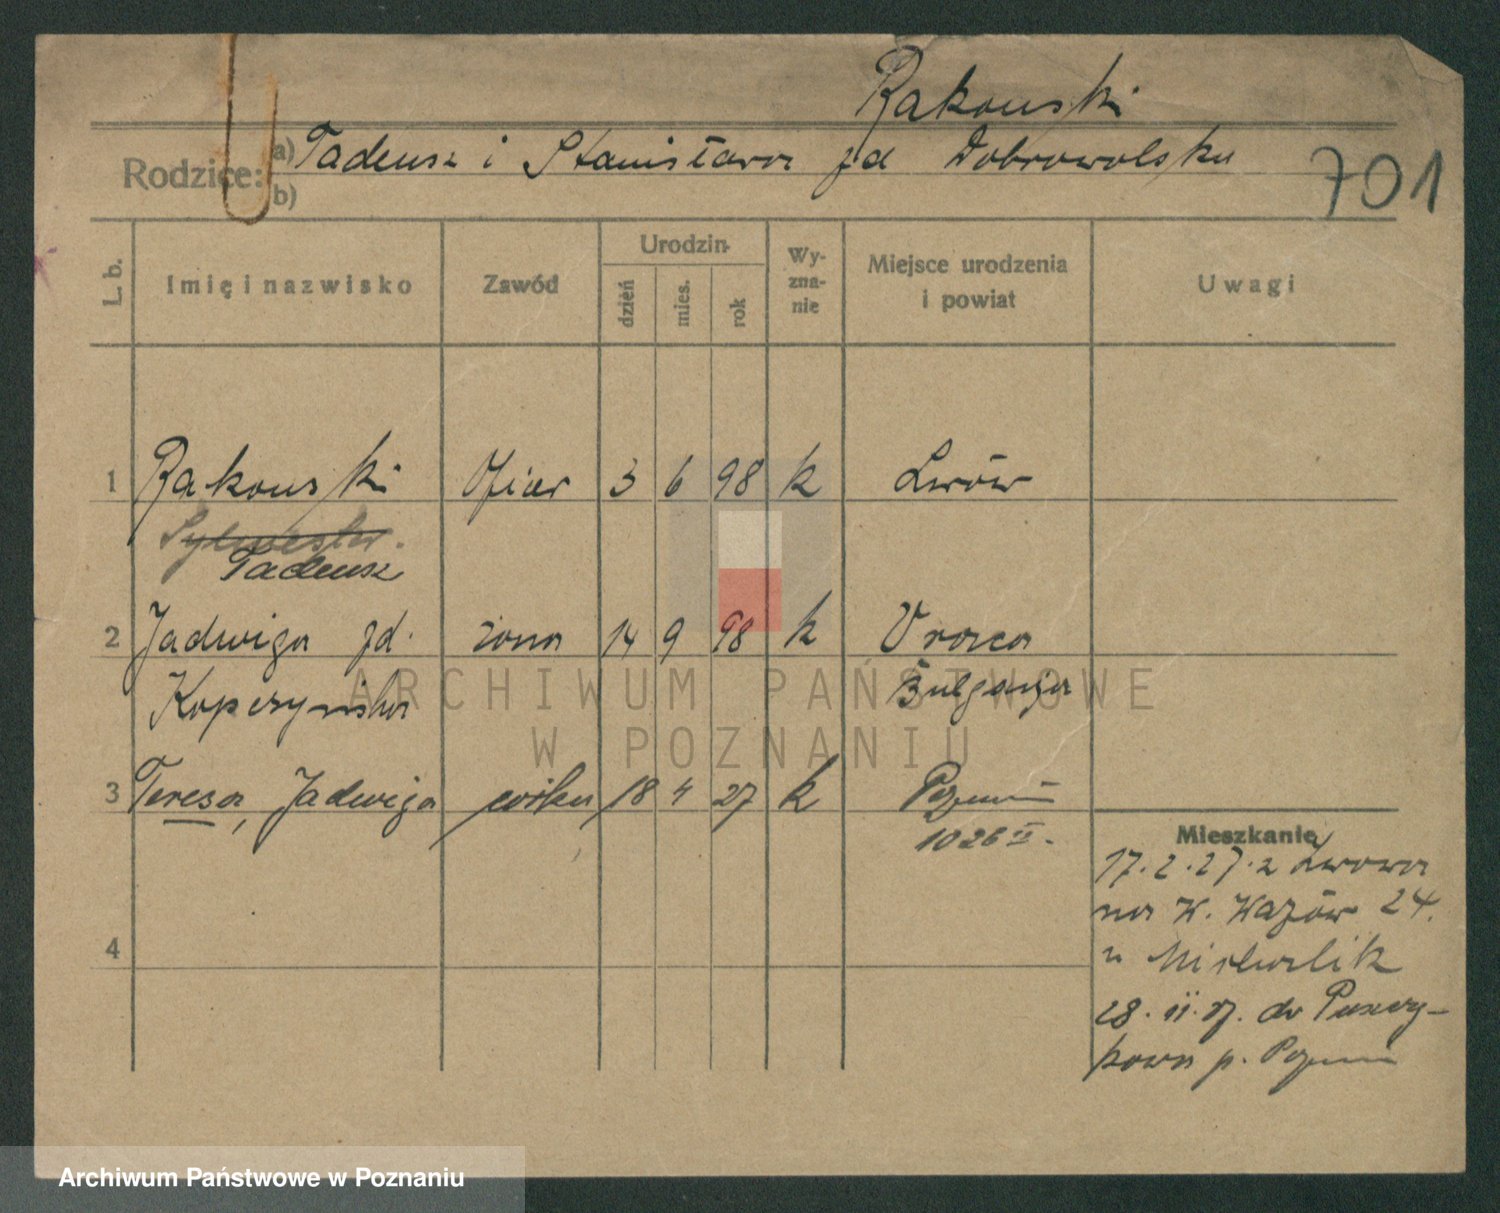 Rakowski
Rodzice: a) Tadeusz i Stanisława zd Dobrowolska
b)
701
L. b.
Imię i nazwisko
Zawód
Urodzin
dzień
mies.
rok
Wy-
zna-
nie
Miejsce urodzenia
i powiat
Uwagi
1 Rakowski Oficer 3 6 98 k Lwów
Sylwester.
Tadeusz
2 Jadwiga zd. żona 14 9 98 k Vraca
Kopczyńska Bulgarja
3 Teresa, Jadwiga córka 18 4 27 k Poznań
1026 II.
4
Mieszkanie
17.2.27. z Lwowa
na W. Wazów 24.
u
28. II. 27. do
p. Poznań
ARCHIWUM PAŃSTWOWE
W POZNANIU
Archiwum Państwowe w Poznaniu